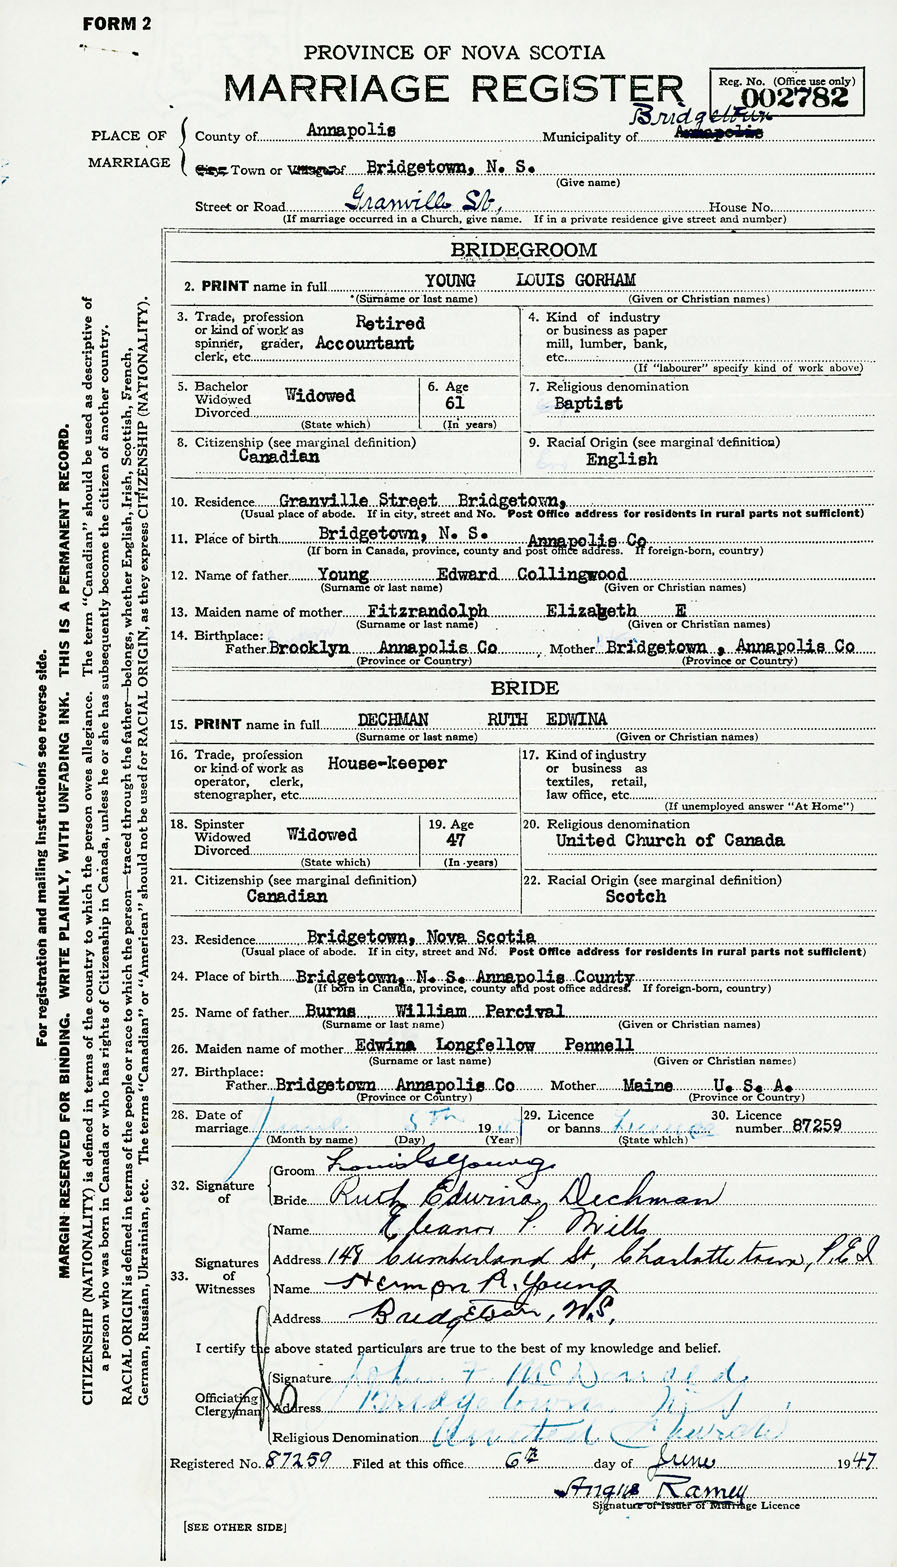 FORM 2
PROVINCE OF NOVA SCOTIA
MARRIAGE REGISTER
Reg. No. (Office use only)
002782
PLACE OF MARRIAGE
County of Annapolis Municipality of Bridgetown Annapolis
City Town or Village of Bridgetown, N. S.
(Give name)
Street or Road Granville St, House No.
(If marriage occurred in a Church, give name. If in a private residence give street and number)
BRIDEGROOM
2. PRINT name in full YOUNG LOUIS GORHAM
*(Surname or last name) (Given or Christian names)
3. Trade, profession or kind of work as spinner, grader, clerk, etc. Retired Accountant
4. Kind of industry or business as paper mill, lumber, bank, etc.
(If "labourer" specify kind of work above)
5. Bachelor Widowed Divorced Widowed
(State which)
6. Age 61
(In years)
7. Religious denomination
Baptist
8. Citizenship (see marginal definition)
Canadian
9. Racial Origin (see marginal definition)
English
10. Residence Granville Street Bridgetown,
(Usual place of abode. If in city, street and No. Post Office address for residents in rural parts not sufficient)
11. Place of birth Bridgetown, N. S. Annapolis Co
(If born in Canada, province, county and post office address. If foreign-born, country)
12. Name of father Young Edward Collingwood
(Surname or last name) (Given or Christian names)
13. Maiden name of mother Fitzrandolph Elizabeth E
(Surname or last name) (Given or Christian names)
14. Birthplace:
Father Brooklyn Annapolis Co Mother Bridgetown , Annapolis Co
(Province or Country) (Province or Country)
BRIDE
15. PRINT name in full DECHMAN RUTH EDWINA
(Surname or last name) (Given or Christian names)
16. Trade, profession or kind of work as operator, clerk, stenographer, etc. House-keeper
17. Kind of industry or business as textiles, retail, law office, etc.
(If unemployed answer "At Home")
18. Spinster Widowed Divorced Widowed
(State which)
19. Age 47
(In years)
20. Religious denomination
United Church of Canada
21. Citizenship (see marginal definition)
Canadian
22. Racial Origin (see marginal definition)
Scotch
23. Residence Bridgetown, Nova Scotia
(Usual place of abode. If in city, street and No. Post Office address for residents in rural parts not sufficient)
24. Place of birth Bridgetown, N. S. Annapolis County
(If born in Canada, province, county and post office address. If foreign-born, country)
25. Name of father Burns William Percival
(Surname or last name) (Given or Christian names)
26. Maiden name of mother Edwina Longfellow Pennell
(Surname or last name) (Given or Christian names)
27. Birthplace:
Father Bridgetown Annapolis Co Mother Maine U. S. A.
(Province or Country) (Province or Country)
28. Date of marriage June 5th 19
(Month by name) (Day) (Year)
29. Licence or banns License
(State which)
30. Licence number 87259
32. Signature of
Groom Louis G Young
Bride Ruth Edwina Dechman
33. Signatures of Witnesses
Name Eleanor P. Mills
Address 148 Cumberland St, Charlottetown, P.E.I
Name Hermon R. Young
Address Bridgetown, N.S,
I certify the above stated particulars are true to the best of my knowledge and belief.
Officiating Clergyman
Signature John F
Address Bridgetown N S
Religious Denomination United Church
Registered No. 87259 Filed at this office 6th day of June 1947
Angus Ramey
Signature of Issuer of Marriage Licence
[SEE OTHER SIDE]
For registration and mailing instructions see reverse side.
MARGIN RESERVED FOR BINDING. WRITE PLAINLY, WITH UNFADING INK. THIS IS A PERMANENT RECORD.
CITIZENSHIP (NATIONALITY) is defined in terms of the country to which the person owes allegiance. The term "Canadian" should be used as descriptive of
a person who was born in Canada or who has rights of Citizenship in Canada, unless he or she has subsequently become the citizen of another country.
RACIAL ORIGIN is defined in terms of the people or race to which the person—traced through the father—belongs, whether English, Irish, Scottish, French,
German, Russian, Ukrainian, etc. The terms "Canadian" or "American" should not be used for RACIAL ORIGIN, as they express CITIZENSHIP (NATIONALITY).